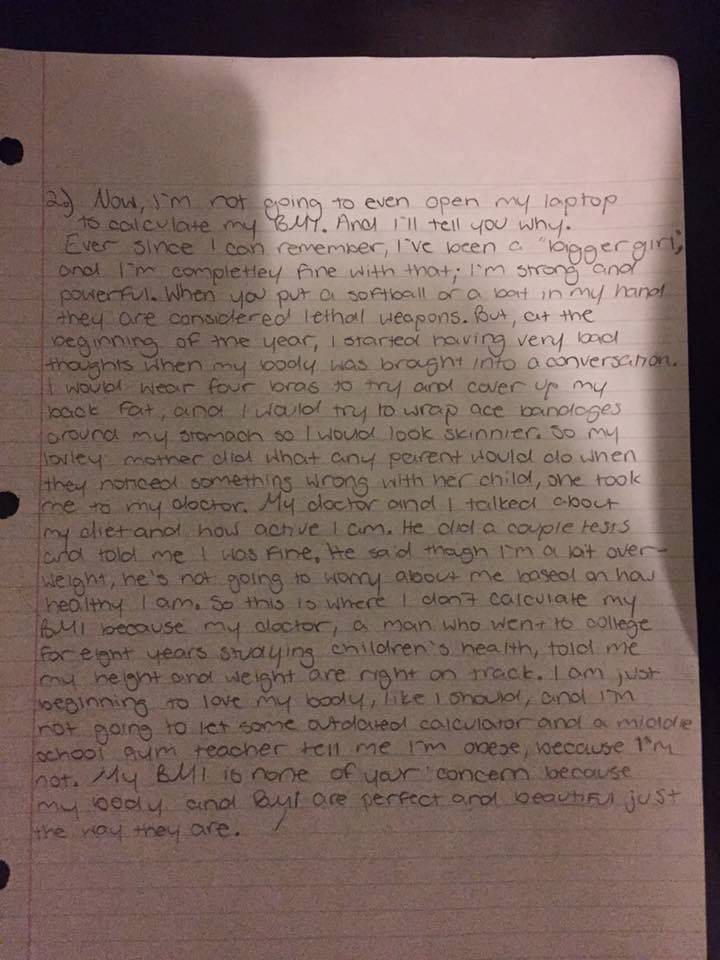 2.) Now, I'm not going to even open my laptop
to calculate my BMI. And I'll tell you why.
Ever since I can remember, I've been a "bigger girl",
and I'm completley fine with that; I'm strong and
powerful. When you put a softball or a bat in my hand
they are considered lethal weapons. But, at the
beginning of the year, I started having very bad
thoughts when my body was brought into a conversation.
I would wear four bras to try and cover up my
back fat, and I would try to wrap ace bandages
around my stomach so I woud look skinnier. So my
lovley mother did what any parent would do when
they noticed something wrong with her child, one took
me to my doctor. My doctor and I talked about
my diet and how active I am. He did a couple tests
and told me I was fine. He said though I'm a bit over-
weight, he's not going to worry about me based on how
healthy I am. So this is where I don't calculate my
BMI because my doctor, a man who went to college
for eight years studying children's health, told me
my height and weight are right on track. I am just
beginning to love my body, like I should, and I'm
not going to let some outdated calculator and a middle
school gym teacher tell me I'm obese, because I'm
not. My BMI is none of your concern because
my body and BMI are perfect and beautiful just
the way they are.